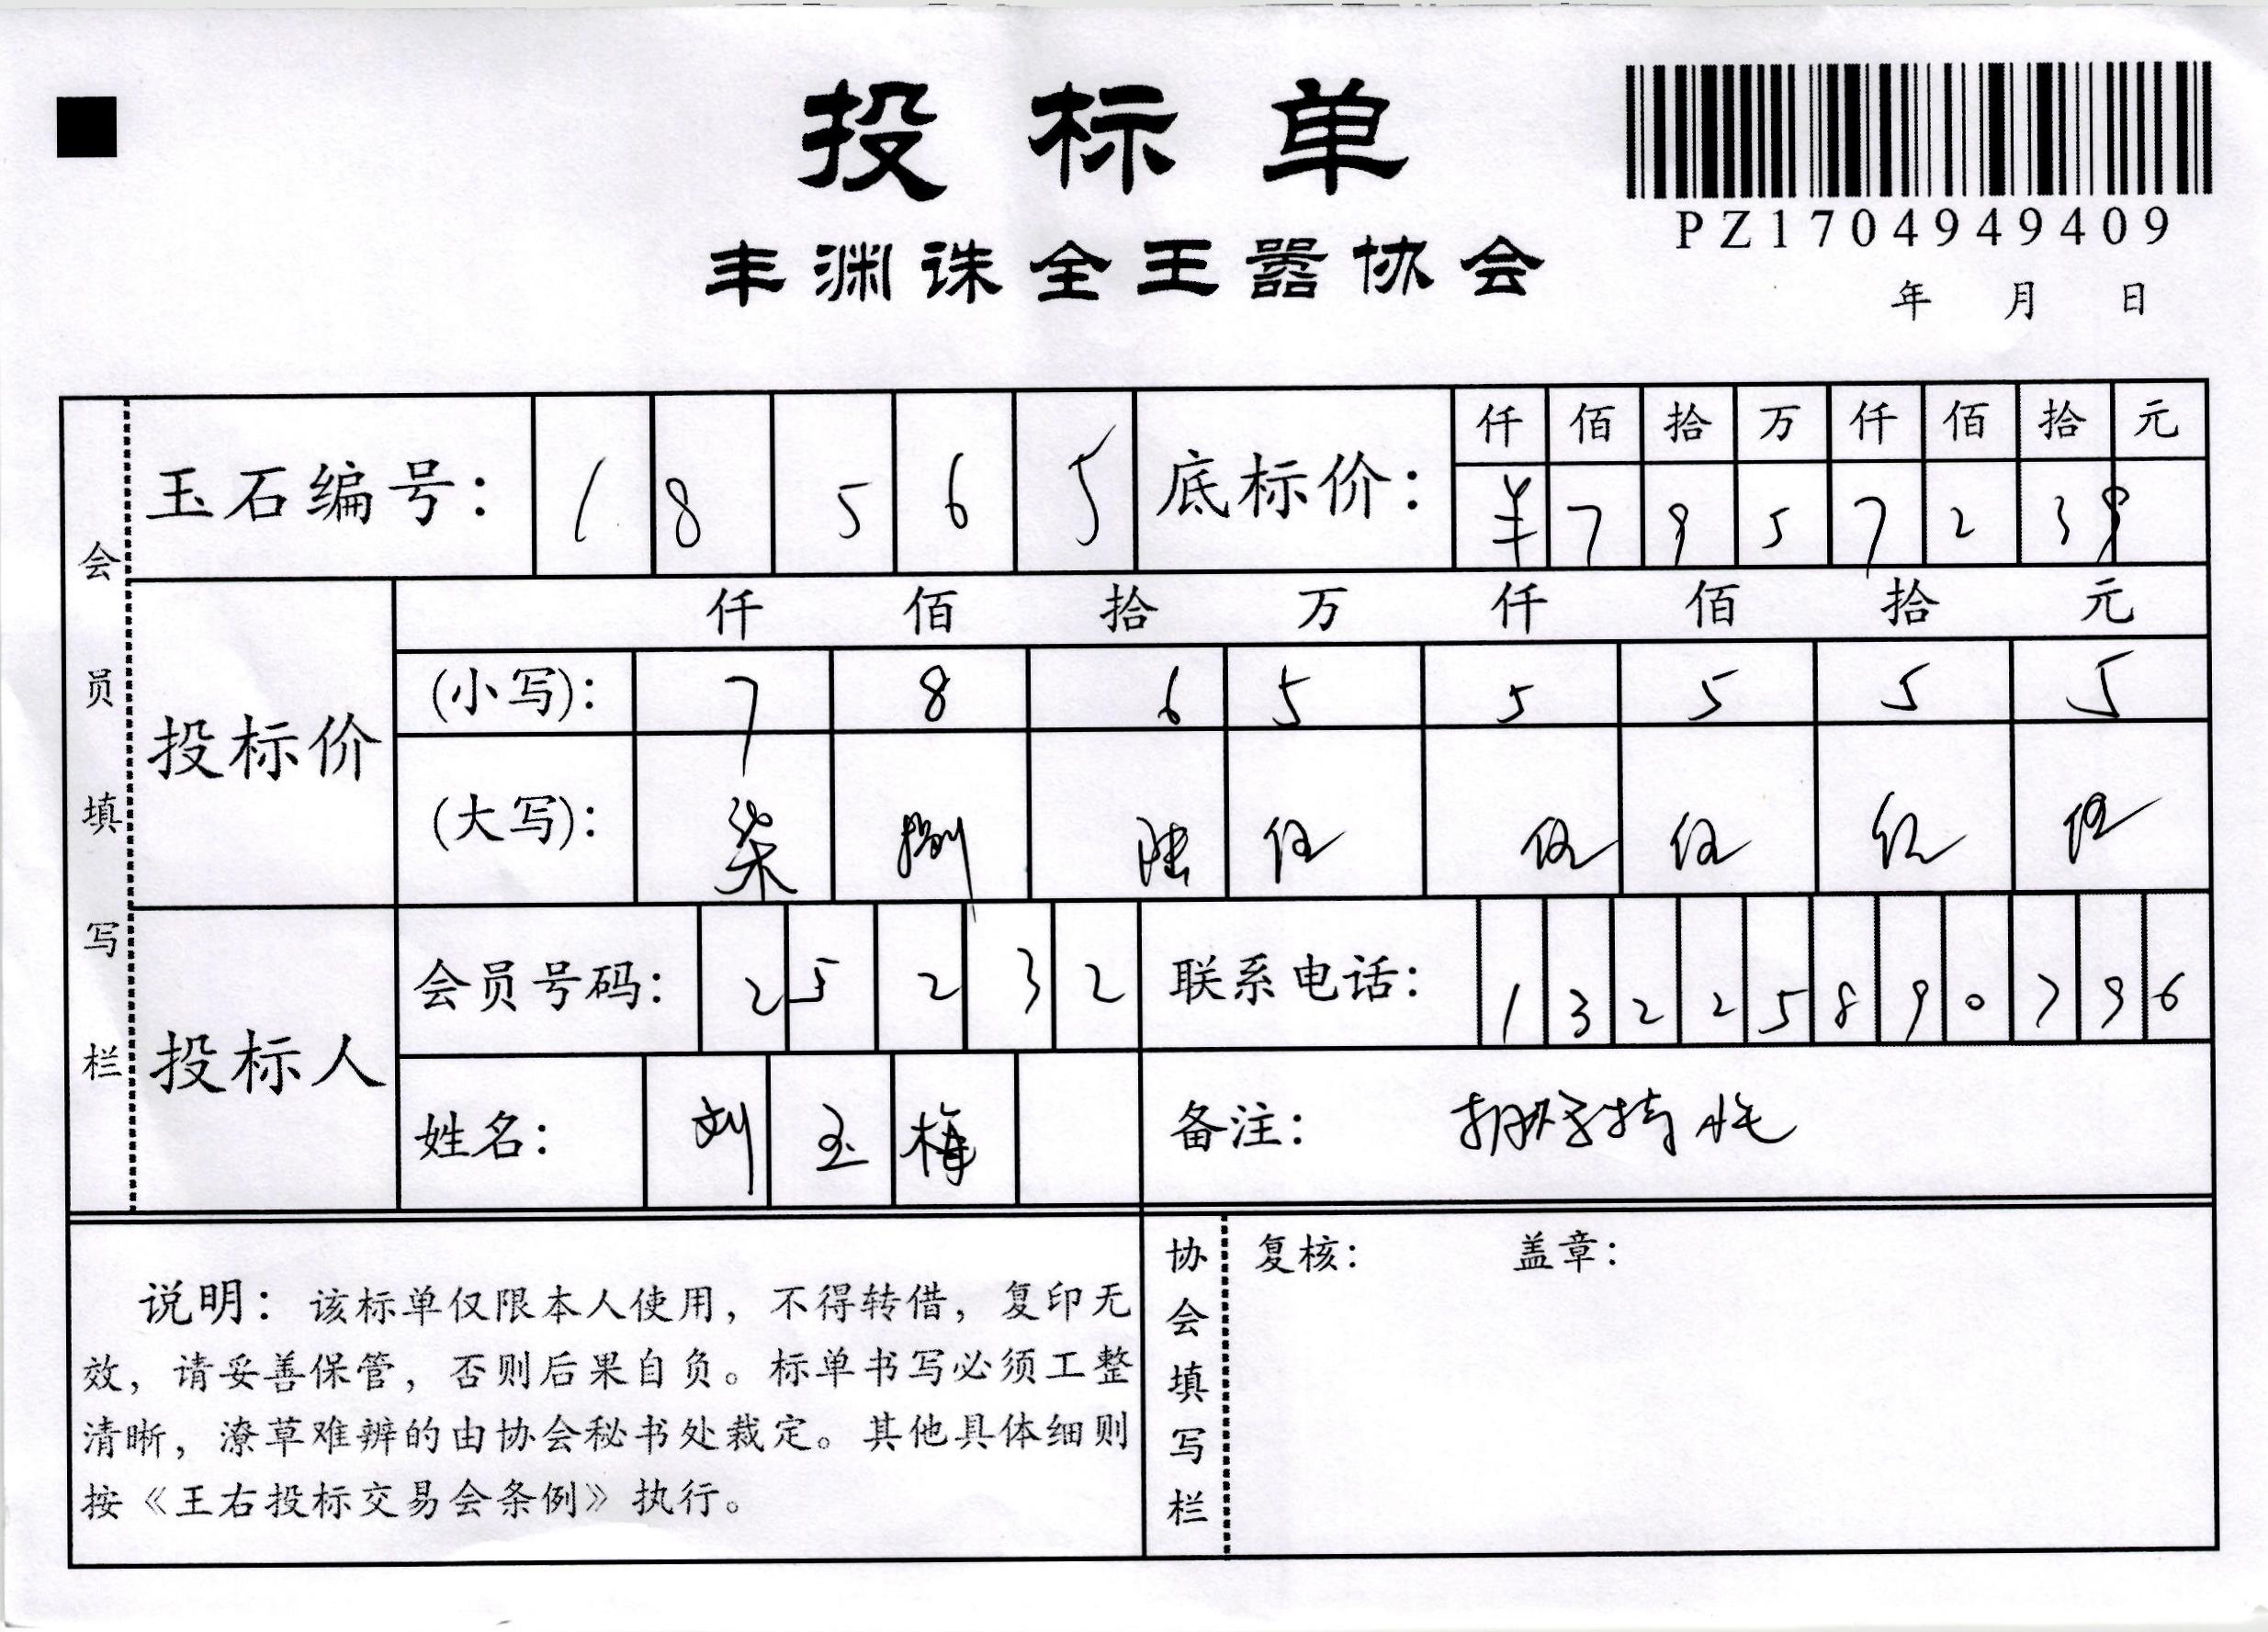 投标单
PZ1704949409
丰渊诛全王嚣协会
年 月 日
会员填写栏
玉石编号: 1 8 5 6 5
底标价: 仟 佰 拾 万 仟 佰 拾 元
¥ 7 9 5 7 2 3 9
投标价
仟 佰 拾 万 仟 佰 拾 元
(小写): 7 8 6 5 5 5 5 5
(大写): 柒 捌 陆 伍 伍 伍 伍 伍
投标人
会员号码: 2 5 2 3 2
联系电话: 1 3 2 2 5 8 9 0 7 9 6
姓名: 刘 玉 梅
备注:
说明: 该标单仅限本人使用, 不得转借, 复印无
效, 请妥善保管, 否则后果自负。标单书写必须工整
清晰, 潦草难辨的由协会秘书处裁定。其他具体细则
按《王右投标交易会条例》执行。
协会填写栏
复核: 盖章: